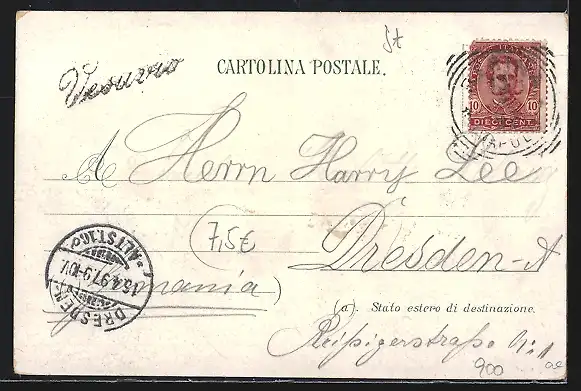 St
Vesuvio
CARTOLINA POSTALE.
10 10
DIECI CENT.
A Herrn Harry Lee
7,5€
Dresden-A
(Germania)
DRESDEN-ALTST. 16
15.4.97. 9-10V.
(a). Stato estero di destinazione.
Reißigerstraße No 1
900